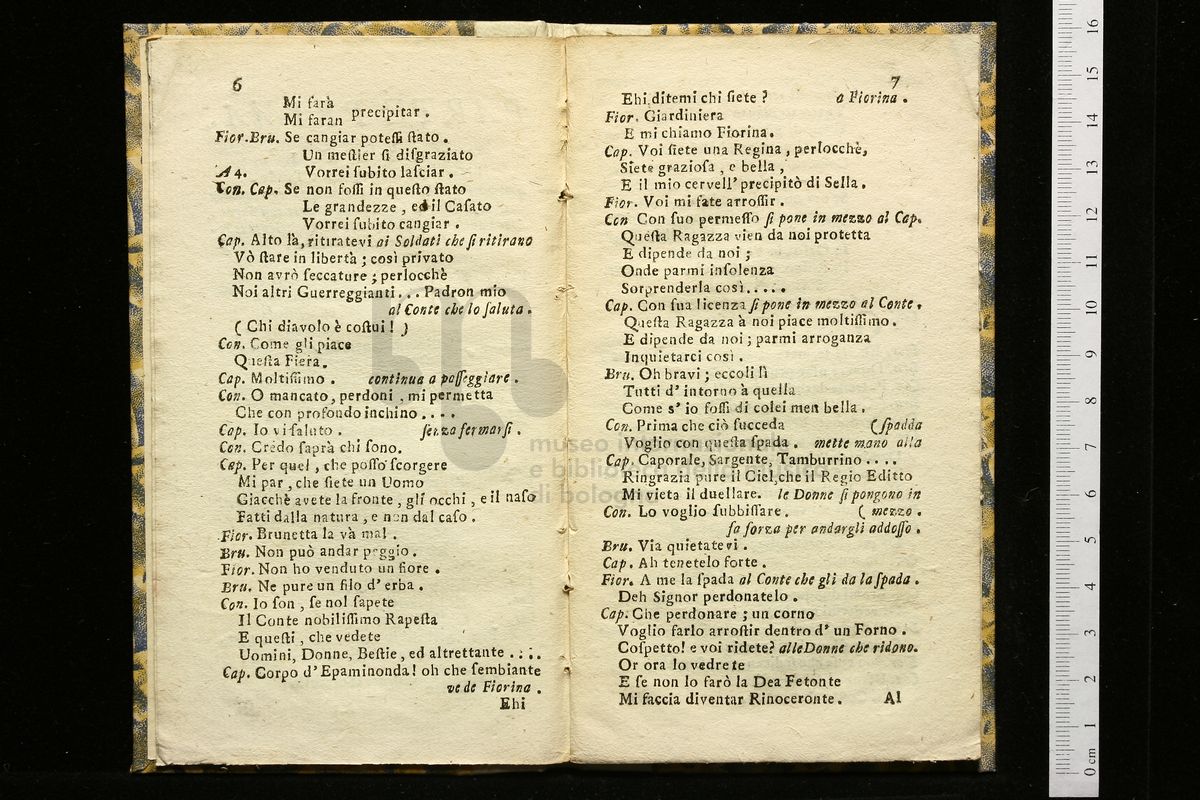 6
Mi farà
Mi faran precipitar.
Fior.Bru. Se cangiar poteſſi ſtato.
Un meſtier ſi diſgraziato
A 4. Vorrei ſubito laſciar.
Con. Cap. Se non foſſi in queſto ſtato
Le grandezze, ed il Caſato
Vorrei ſubito cangiar.
Cap. Alto là, ritiratevi ai Soldati che ſi ritirano
Vò ſtare in libertà; così privato
Non avrò ſeccature; perlocchè
Noi altri Guerreggianti... Padron mio
al Conte che lo ſaluta.
(Chi diavolo è coſtui!)
Con. Come gli piace
Queſta Fiera.
Cap. Moltiſſimo. continua a paſſeggiare.
Con. O mancato, perdoni, mi permetta
Che con profondo inchino....
Cap. Io vi ſaluto. ſenza fermarſi.
Con. Credo ſaprà chi ſono.
Cap. Per quel, che poſſo ſcorgere
Mi par, che ſiete un Uomo
Giacchè avete la fronte, gli occhi, e il naſo
Fatti dalla natura, e non dal caſo.
Fior. Brunetta la và mal.
Bru. Non può andar peggio.
Fior. Non ho venduto un fiore.
Bru. Ne pure un filo d'erba.
Con. Io ſon, ſe nol ſapete
Il Conte nobiliſſimo Rapeſta
E queſti, che vedete
Uomini, Donne, Beſtie, ed altrettante....
Cap. Corpo d'Epaminonda! oh che ſembiante
vede Fiorina.
Ehi
7
Ehi ditemi chi ſiete? a Fiorina.
Fior. Giardiniera
E mi chiamo Fiorina.
Cap. Voi ſiete una Regina, perlocchè,
Siete grazioſa, e bella,
E il mio cervell' precipitò di Sella.
Fior. Voi mi fate arroſſir.
Con Con ſuo permeſſo ſi pone in mezzo al Cap.
Queſta Ragazza vien da noi protetta
E dipende da noi;
Onde parmi inſolenza
Sorprenderla così.....
Cap. Con ſua licenza ſi pone in mezzo al Conte.
Queſta Ragazza à noi piace moltiſſimo.
E dipende da noi; parmi arroganza
Inquietarci così.
Bru. Oh bravi; eccoli lì
Tutti d'intorno à quella
Come s'io foſſi di colei men bella.
Con. Prima che ciò ſucceda (ſpadda
Voglio con queſta ſpada. mette mano alla
Cap. Caporale, Sargente, Tamburrino....
Ringrazia pure il Ciel, che il Regio Editto
Mi vieta il duellare. le Donne ſi pongono in
Con. Lo voglio ſubbiſſare. (mezzo.
fa forza per andargli addoſſo.
Bru. Via quietatevi.
Cap. Ah tenetelo forte.
Fior. A me la ſpada al Conte che gli da la ſpada.
Deh Signor perdonatelo.
Cap. Che perdonare; un corno
Voglio farlo arroſtir dentro d'un Forno.
Coſpetto! e voi ridete? alle Donne che ridono.
Or ora lo vedrete
E ſe non lo farò la Dea Fetonte
Mi faccia diventar Rinoceronte. Al
museo
e biblio
di bolo
0 cm 1 2 3 4 5 6 7 8 9 10 11 12 13 14 15 16